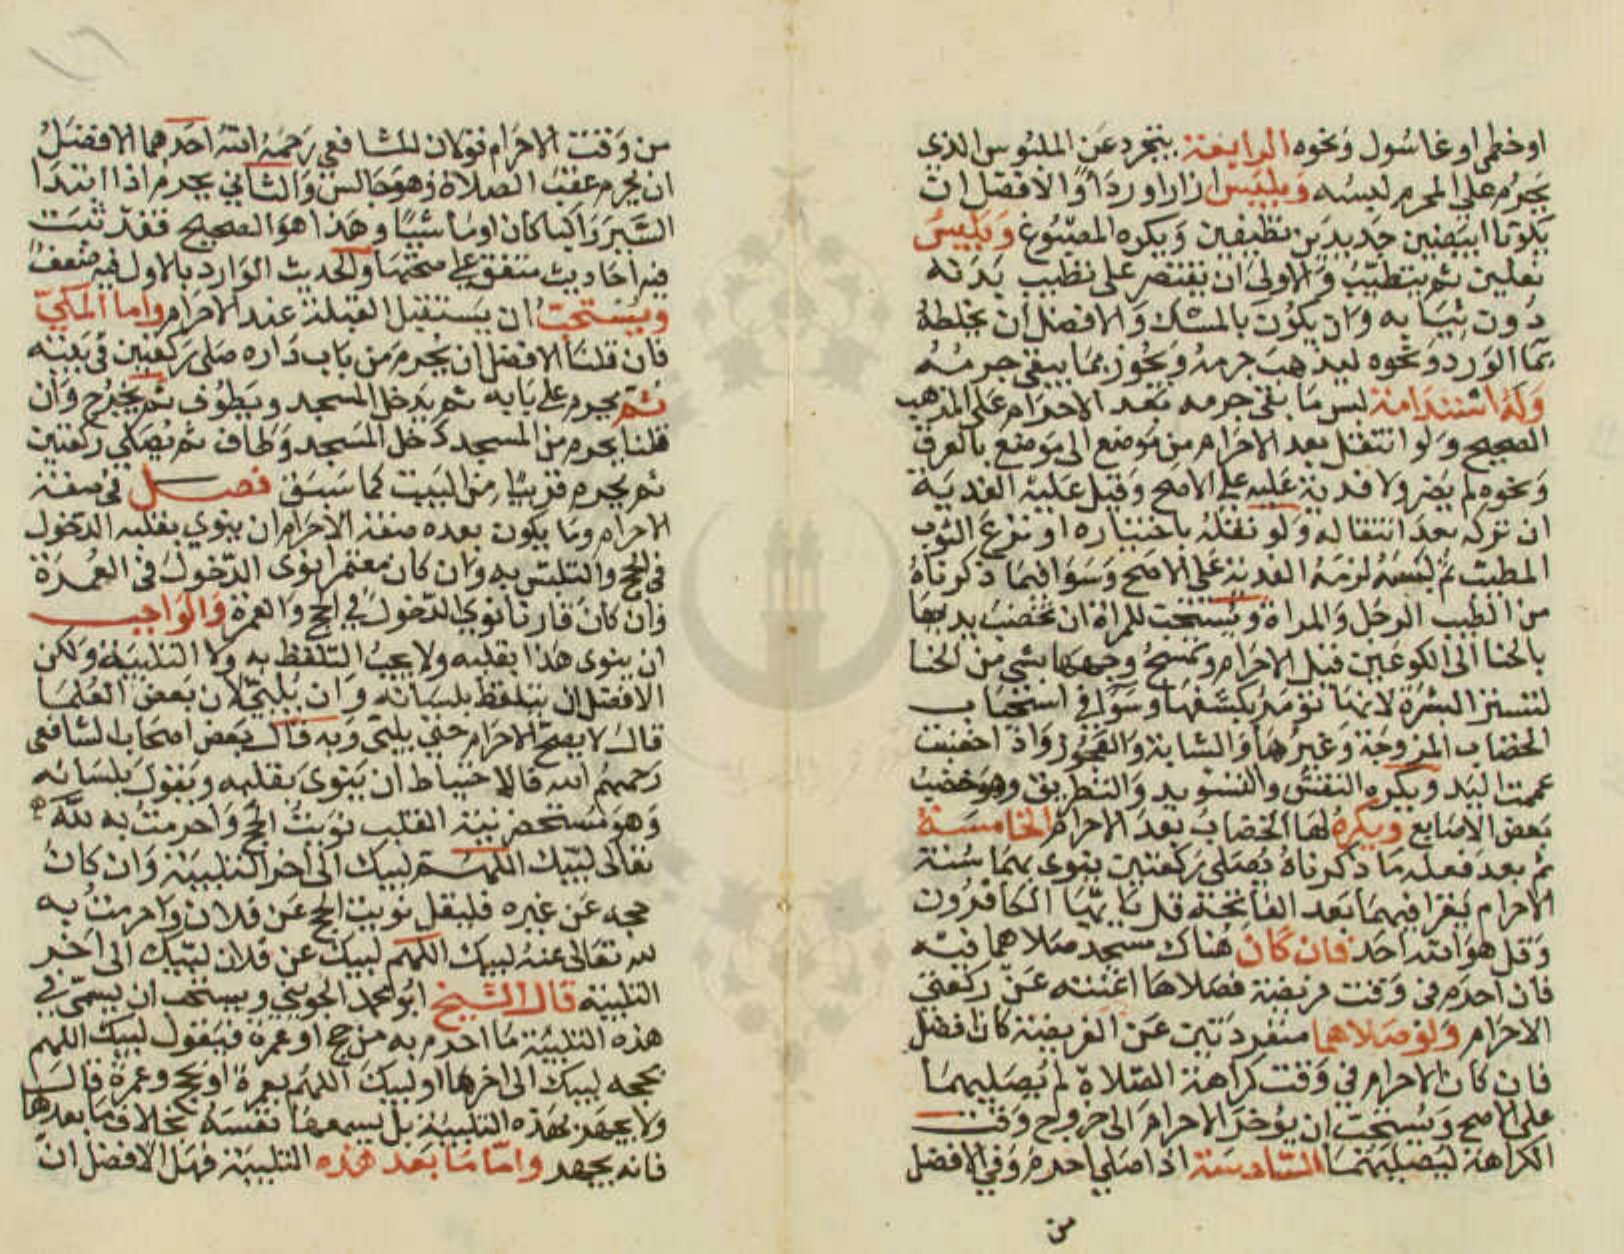 اوخطمى اوغاسول ونحوه الرابعة يتجرد عن الملبوس الذى
يحرم على المحرم لبسه ويلبس ازارا ورداءا والافضل ان
يكونا ابيضين جديدين نظيفين ويكره المصبوغ ويلبس
نعلين ثم يتطيب والاولى ان يقتصر على تطييب بدنه
دون ثيابه وان يكون بالمسك والافضل ان يخلطه
بما الورد ونحوه ليذهب جرمه ويجوز بما يبقى جرمه
وله استدامة لبس ما بقى جرمه بعد الاحرام على المذهب
الصحيح ولو انتقل بعد الاحرام من موضع الى موضع بالعرق
ونحوه لم يضر ولا فدية عليه على الاصح وقيل عليه الفدية
ان تركه بعد انتقاله ولو نقله باختياره او نزع الثوب
المطيب ثم لبسه لزمه الفدية على الاصح وسوا فيما ذكرناه
من الطيب الرجل والمراة ويستحب للمراة ان تخضب يديها
بالحنا الى الكوعين قبل الاحرام وتمسح وجهها بشى من الحنا
لتستتر البشرة لانها تؤمر بكشفها وسوا فى استحباب
الخضاب المزوجة وغيرها والشابة والعجوز واذا خضبت
عممت اليد ويكره النقش والتسويد والتطريق وهو خضب
بعض الاصابع ويكره لها الخضاب بعد الاحرام الخامسة
ثم بعد فعله ما ذكرناه يصلى ركعتين ينوى بهما سنة
الاحرام يقرا فيهما بعد الفاتحة قل يا يها الكافرون
وقل هو الله احد فان كان هناك مسجد صلاهما فيه
فان احرم فى وقت فريضة فصلاها اغنته عن ركعتى
الاحرام ولو صلاهما منفردتين عن الفريضة كان افضل
فان كان الاحرام فى وقت كراهة الصلاة لم يصليهما
على الاصح ويستحب ان يؤخر الاحرام الى خروج وقت
الكراهة ليصليهما السادسة اذا صلى احرم وفى الافضل
من
من وقت الاحرام قولان للشافعى رحمه الله احدهما الافضل
ان يحرم عقب الصلاة وهو جالس والثانى يحرم اذا ابتدا
السير راكبا كان او ماشيا وهذا هو الصحيح فقد ثبت
فيه احاديث متفق على صحتها والحديث الوارد بالاول فيه ضعف
ويستحب ان يستقبل القبلة عند الاحرام واما المكى
فان قلنا الافضل ان يحرم من باب داره صلى ركعتين فى بيته
ثم يحرم على بابه ثم يدخل المسجد ويطوف ثم يخرج وان
قلنا يحرم من المسجد دخل المسجد وطاف ثم يصلى ركعتين
ثم يحرم قريبا من البيت كما سبق فصل فى صفة
الاحرام وما يكون بعده صفة الاحرام ان ينوى بقلبه الدخول
فى الحج والتلبس به وان كان معتمرا نوى الدخول فى العمرة
وان كان قارنا نوى الدخول فى الحج والعمرة والواجب
ان ينوى هذا بقلبه ولا يجب التلفظ به ولا التلبية ولكن
الافضل ان يتلفظ بلسانه وان يلبى لان بعض العلما
قال لا يصح الاحرام حتى يلبى وبه قال بعض اصحاب الشافعى
رحمهم الله فالاحتياط ان ينوى بقلبه ويقول بلسانه
وهو مستحضر نية القلب نويت الحج واحرمت به لله
تعالى لبيك اللهم لبيك الى اخر التلبية وان كان
حجه عن غيره فليقل نويت الحج عن فلان واحرمت به
لله تعالى عنه لبيك اللهم لبيك عن فلان لبيك الى اخر
التلبية قال الشيخ ابو محمد الجوينى ويستحب ان يسمى فى
هذه التلبية ما احرم به من حج او عمرة فيقول لبيك اللهم
بحجه لبيك الى اخرها او لبيك اللهم بعمرة او بحج وعمرة قال
ولا يجهر بهذه التلبية بل يسمعها نفسه بخلاف ما بعدها
فانه يجهر واما ما بعد هذه التلبية فهل الافضل ان